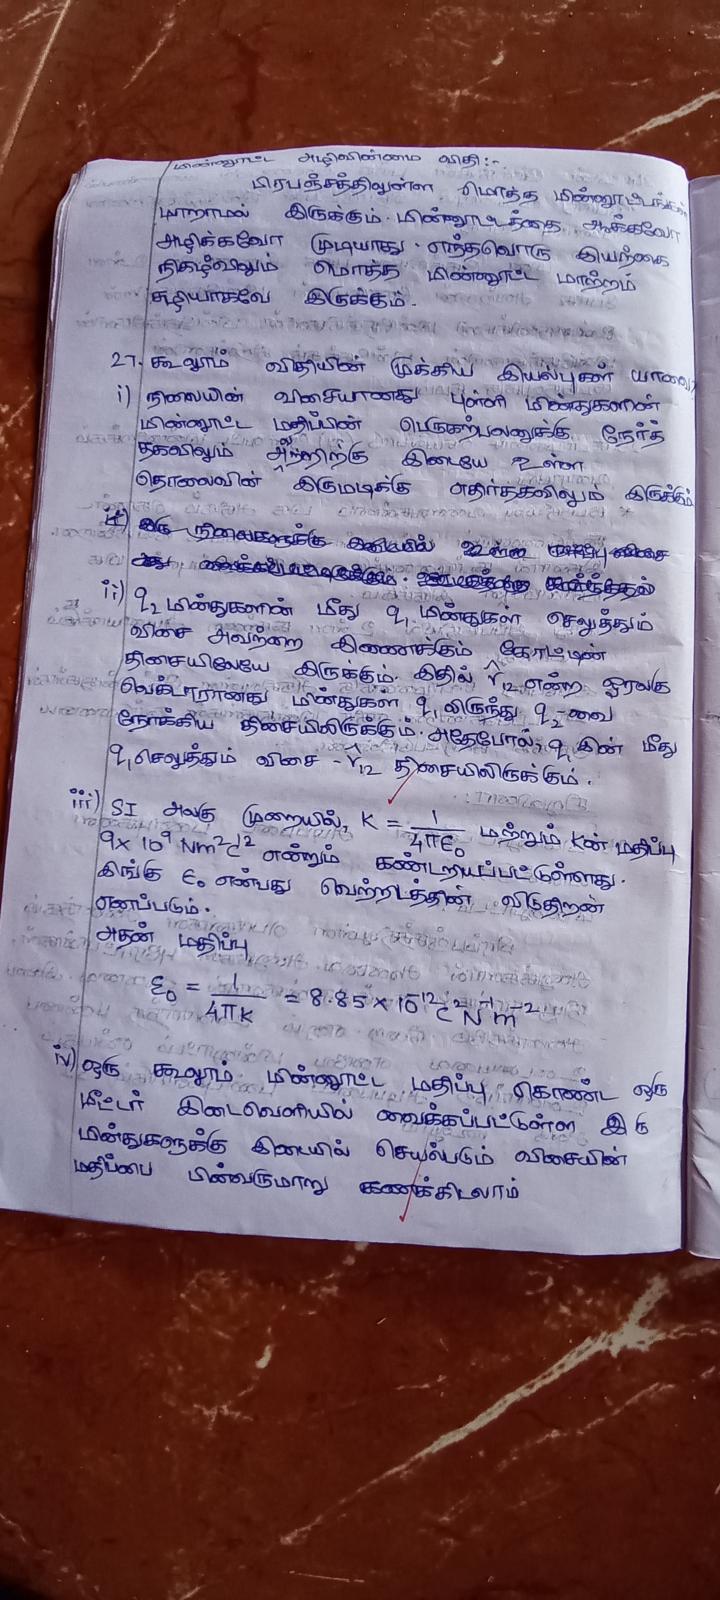 மின்னூட்ட அழிவின்மை விதி:-
பிரபஞ்சத்திலுள்ள மொத்த மின்னூட்டங்கள்
மாறாமல் இருக்கும். மின்னூட்டத்தை ஆக்கவோ
அழிக்கவோ முடியாது. எந்தவொரு இயற்கை
நிகழ்விலும் மொத்த மின்னூட்ட மாற்றம்
சுழியாகவே இருக்கும்.
27. கூலூம் விதியின் முக்கிய இயல்புகள் யாவை?
i) நிலையின் விசையானது புள்ளி மின்துகளின்
மின்னூட்ட மதிப்பின் பெருகற்பலனுக்கு நேர்த்
தகவிலும் அவற்றிற்கு இடையே உள்ள
தொலைவின் இருமடிக்கு எதிர்தகவிலும் இருக்கும்
ii) q₂ மின்துகளின் மீது q₁ மின்துகள் செலுத்தும்
விசை அவற்றை இணைக்கும் கோட்டின்
திசையிலேயே இருக்கும். இதில் r̂₁₂ என்ற ஓரலகு
வெக்டாரானது மின்துகள் q₁ லிருந்து q₂-வை
நோக்கிய திசையிலிருக்கும். அதேபோல், q₁ இன் மீது
q₁ செலுத்தும் விசை - r̂₁₂ திசையிலிருக்கும்.
iii) SI அலகு முறையில், K = 1/4πε₀ மற்றும் Kன் மதிப்பு
9x 10⁹ Nm²C⁻² என்றும் கண்டறியப்பட்டுள்ளது.
இங்கு ε₀ என்பது வெற்றிடத்தின் விடுதிறன்
எனப்படும்.
அதன் மதிப்பு
ε₀ = 1/4πK = 8.85 x 10⁻¹² C² N⁻¹ m⁻²
iv) ஒரு கூலூம் மின்னூட்ட மதிப்பு கொண்ட ஒரு
மீட்டர் இடைவெளியில் வைக்கப்பட்டுள்ள இரு
மின்துகளுக்கு இடையில் செயல்படும் விசையின்
மதிப்பை பின்வருமாறு கணக்கிடலாம்